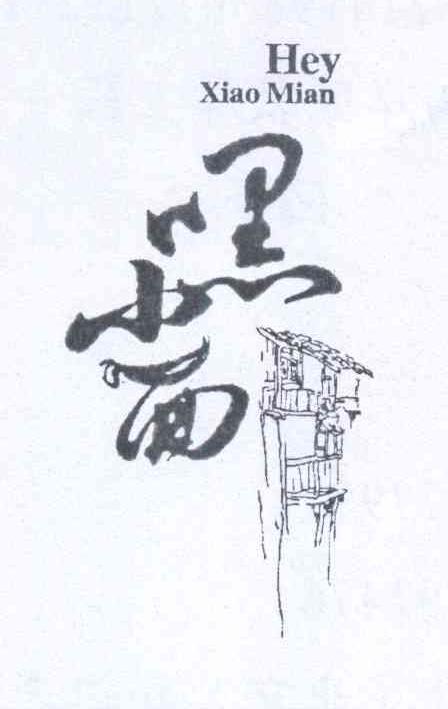 Hey
Xiao Mian
嘿
小
面